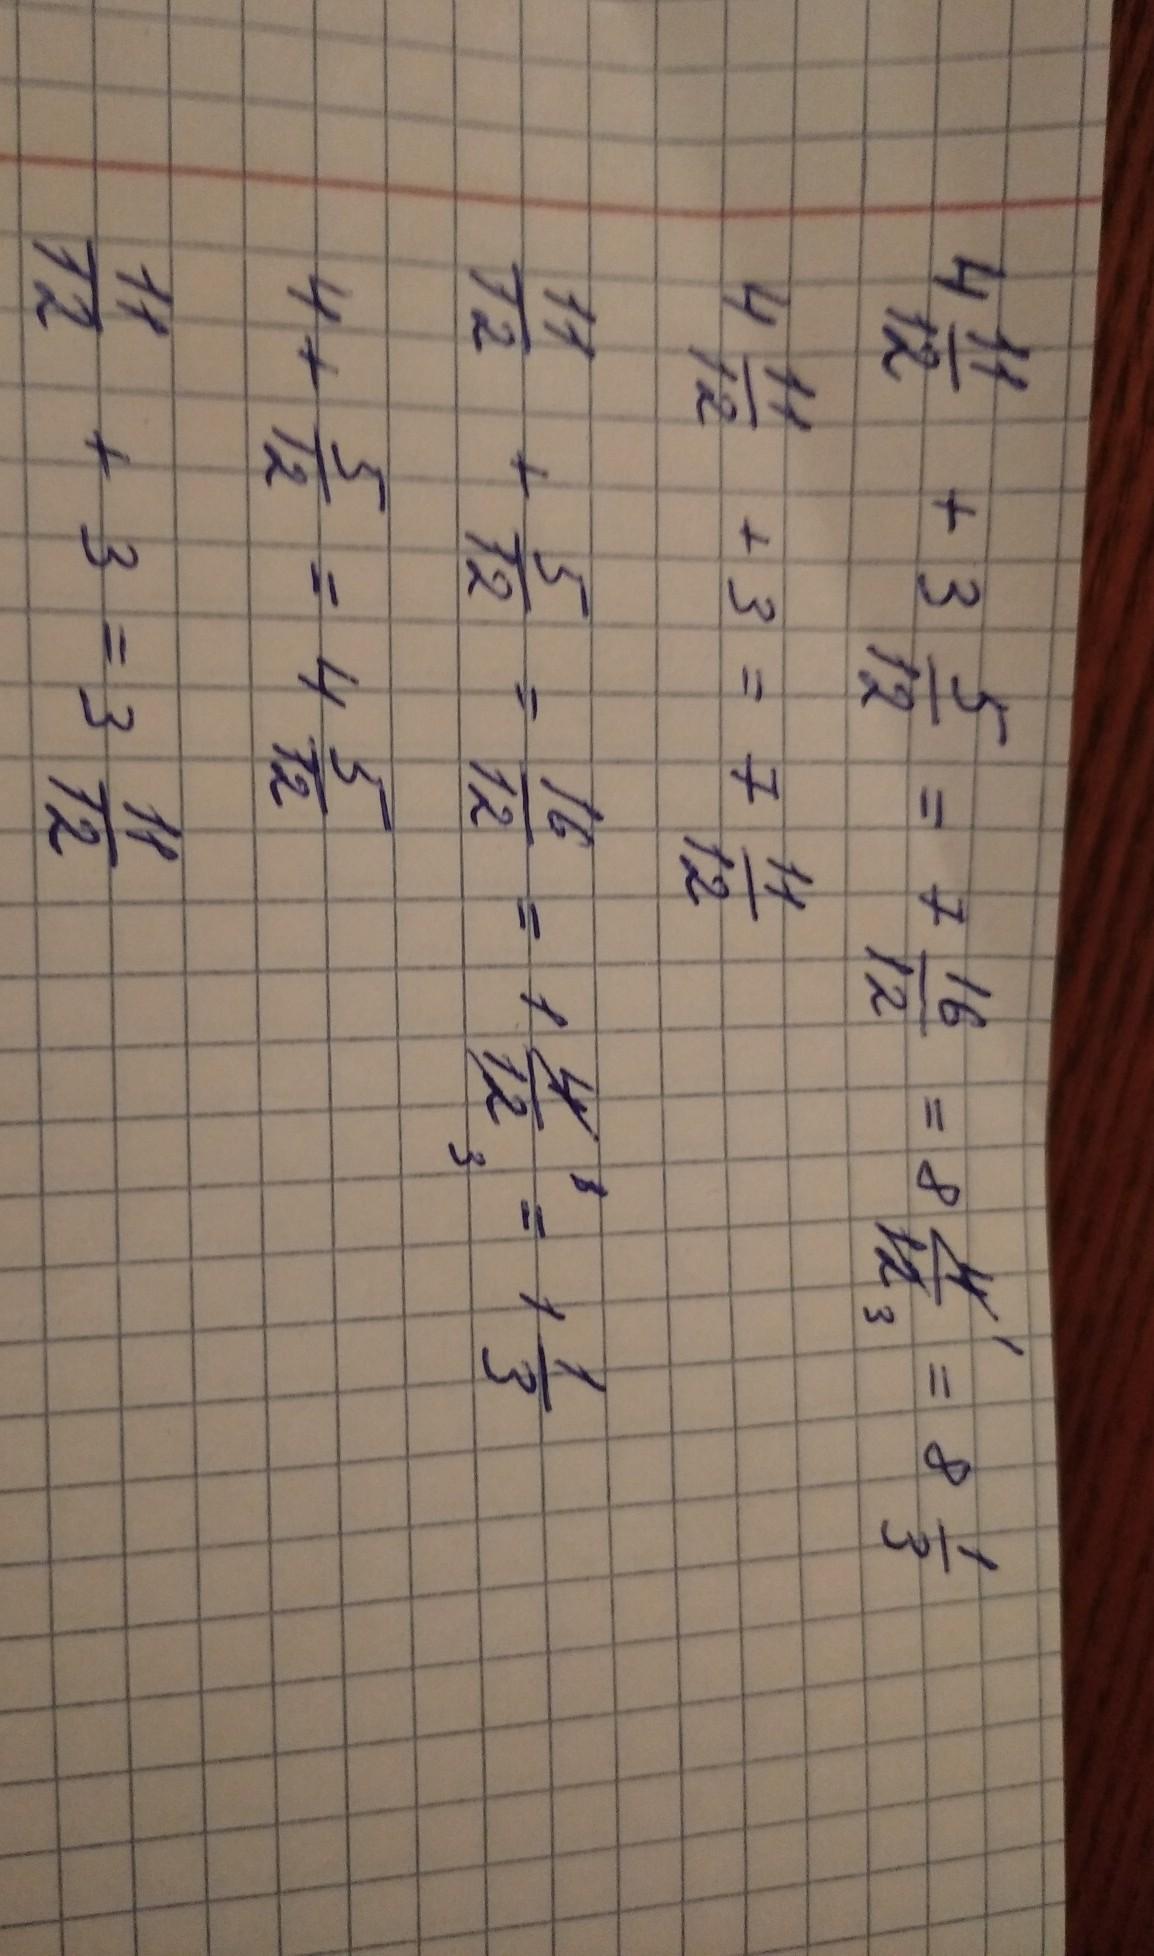 4 11/12 + 3 5/12 = 7 16/12 = 8 4/12 1 3 = 8 1/3
4 11/12 + 3 = 7 11/12
11/12 + 5/12 = 16/12 = 1 4/12 1 3 = 1 1/3
4 + 5/12 = 4 5/12
11/12 + 3 = 3 11/12